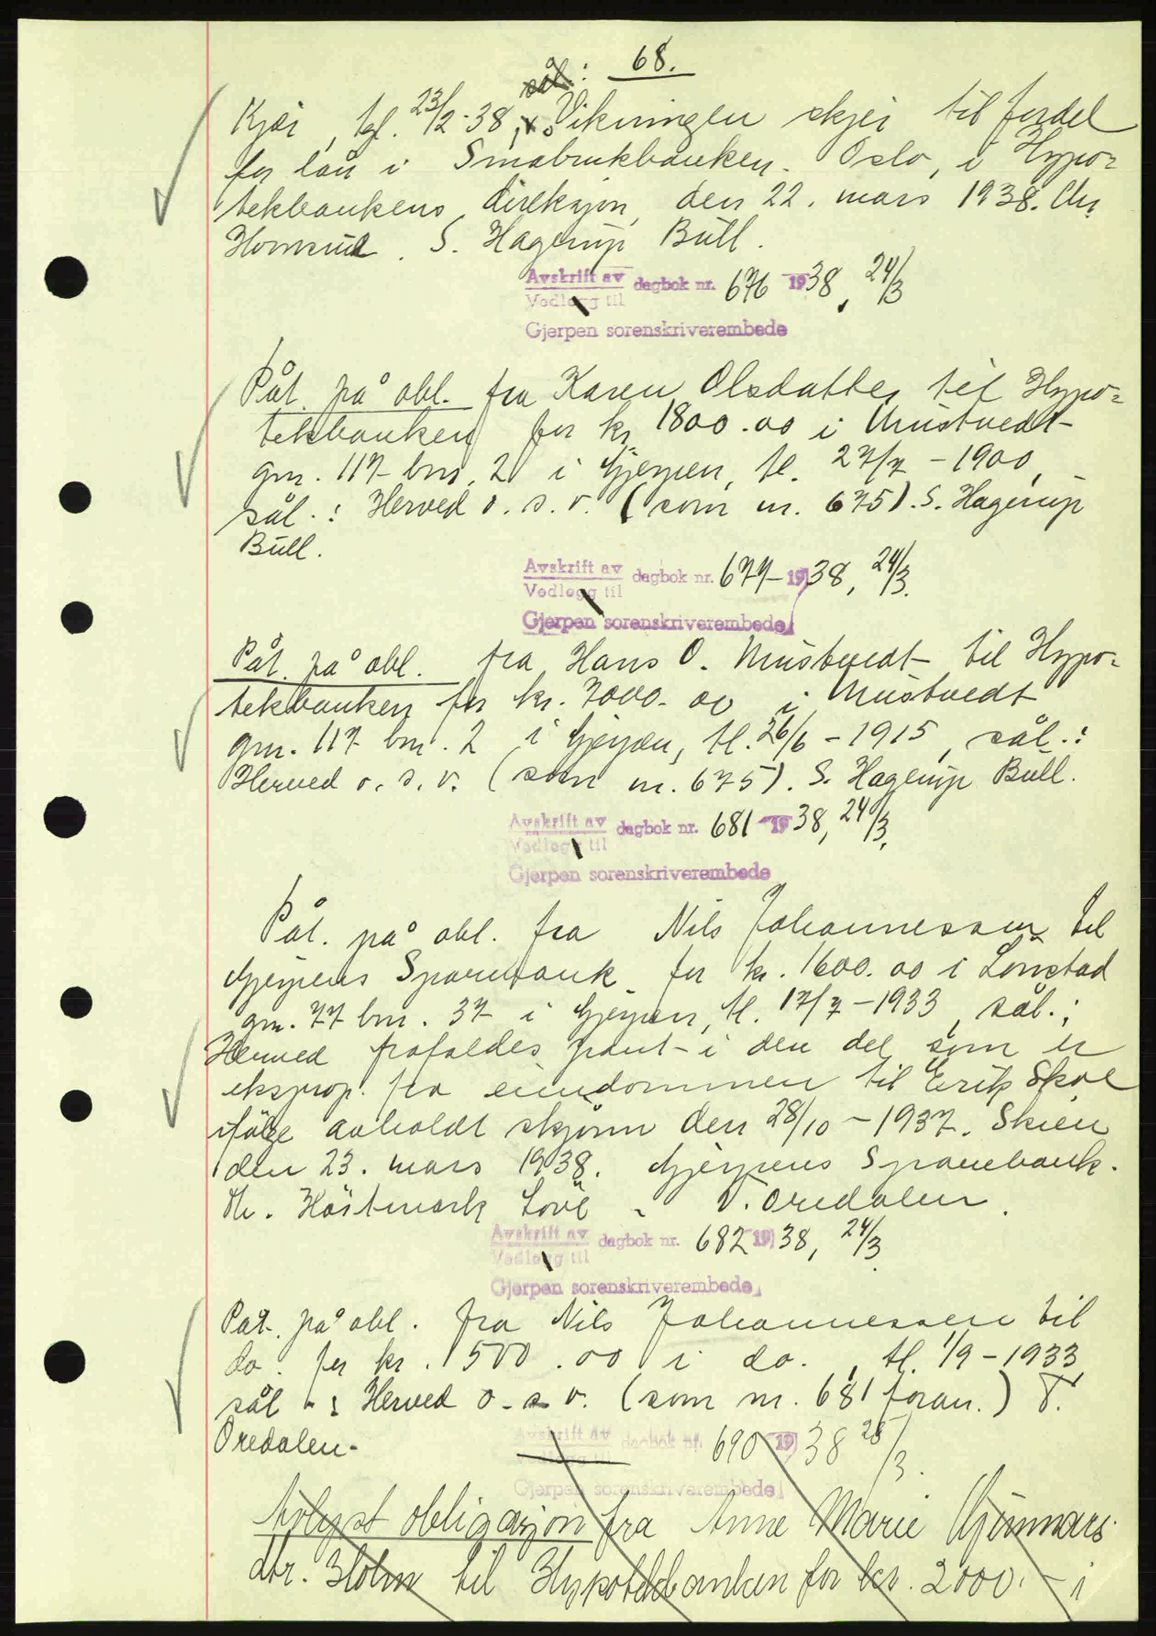 68.
Kjær, tgl. 23/2-38, x. Vikningen skjer til fordel
for lån i Småbrukbanken. Oslo, i Hypo=
tekbankens direksjon, den 22. mars 1938. Chr.
Homsrud. S. Hagerup Bull.
Avskrift av dagbok nr. 676 1938, 24/3
Vedlegg til
Gjerpen sorenskriverembede
Påt. på obl. fra Karen Olsdatter til Hypo=
tekbanken for kr. 1800.00 i Mustvedt
gnr. 117 bnr. 2 i Gjerpen, tl. 27/7 - 1900,
sål.: Herved o. s. v. (som nr. 675). S. Hagerup
Bull.
Avskrift av dagbok nr. 677 - 1938, 24/3.
Vedlegg til
Gjerpen sorenskriverembede
Påt. på obl. fra Hans O. Mustvedt til Hypo=
tekbanken for kr. 7000.00 i Mustvedt
gnr. 117 bnr. 2 i Gjerpen, tl. 26/6 - 1915, sål.:
Herved o. s. v. (som nr. 675). S. Hagerup Bull.
Avskrift av dagbok nr. 681 - 1938, 24/3.
Vedlegg til
Gjerpen sorenskriverembede
Påt. på obl. fra Nils Johannessen til
Gjerpens Sparebank for kr. 1600.00 i Lönstad
gnr. 77 bnr. 37 i Gjerpen, tl. 17/7 - 1933, sål.:
Herved frafaldes pant i den del som er
eksprop. fra eiendommen til Erik Skoe
ifölge avholdt skjönn den 28/10 - 1937. Skien
den 23. mars 1938. Gjerpens Sparebank.
Höstmark Lövl. T. Oredalen.
Avskrift av dagbok nr. 682 1938, 24/3.
Vedlegg til
Gjerpen sorenskriverembede
Påt. på obl. fra Nils Johannessen til
do. for kr. 500.00 i do., tl. 1/9 - 1933
sål.: Herved o. s. v. (som nr. 681 foran.) T.
Oredalen.
Avskrift av dagbok nr. 690 1938 25/3.
Gjerpen sorenskriverembede
Avlyst obligasjon fra Anne Marie Gunnars
dtr. Holm til Hypotekbanken for kr. 2000.- i